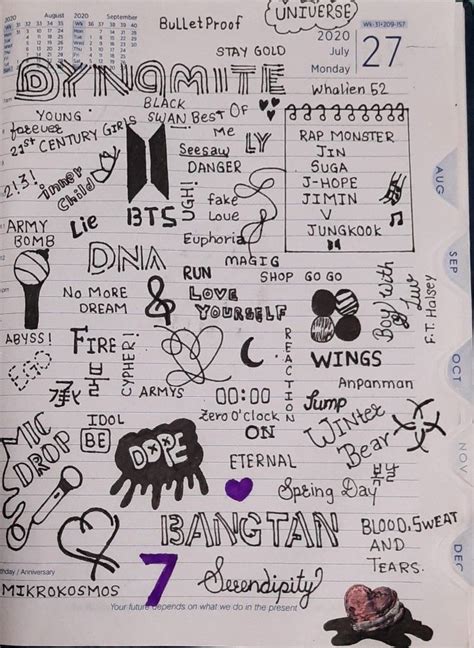 2020 August 2020 September
UNIVERSE
Wk-31•209-157
BulletProof
2020
July
Monday
27
STAY GOLD
DYNAMITE
Whalien 52
YOUNG
forever
BLACK
SWAN
Best Of
Me
21st CENTURY GIRLS
LY
Seesaw
DANGER
RAP MONSTER
JIN
SUGA
J-HOPE
JIMIN
V
JUNGKOOK
AUG
2!3!
inner
Child
UGH!
fake
Love
Lie
BTS
ARMY
BOMB
Euphoria
SEP
DNA
MAGIG
RUN
SHOP
GO GO
Boy With
Luv
F.T. Halsey
NO MORE
DREAM
LOVE
YOURSELF
ABYSS!
FIRE
CYPHER!
REACTION
WINGS
EGO
승
불
ARMYS
OCT
00:00
Zero O'Clock
Anpanman
Jump
MIC
DROP
IDOL
BE
ON
WINter
Bear
DOPE
ETERNAL
NOV
Spring Day
BANGTAN
BLOOD, SWEAT
AND
TEARS.
DEC
thday / Anniversary
MIKROKOSMOS
7
Serendipity
Your future depends on what we do in the present